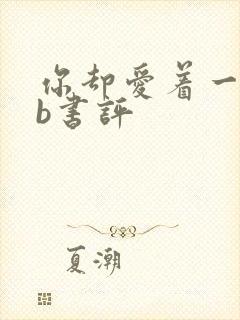 你却爱着一
b书评
夏潮